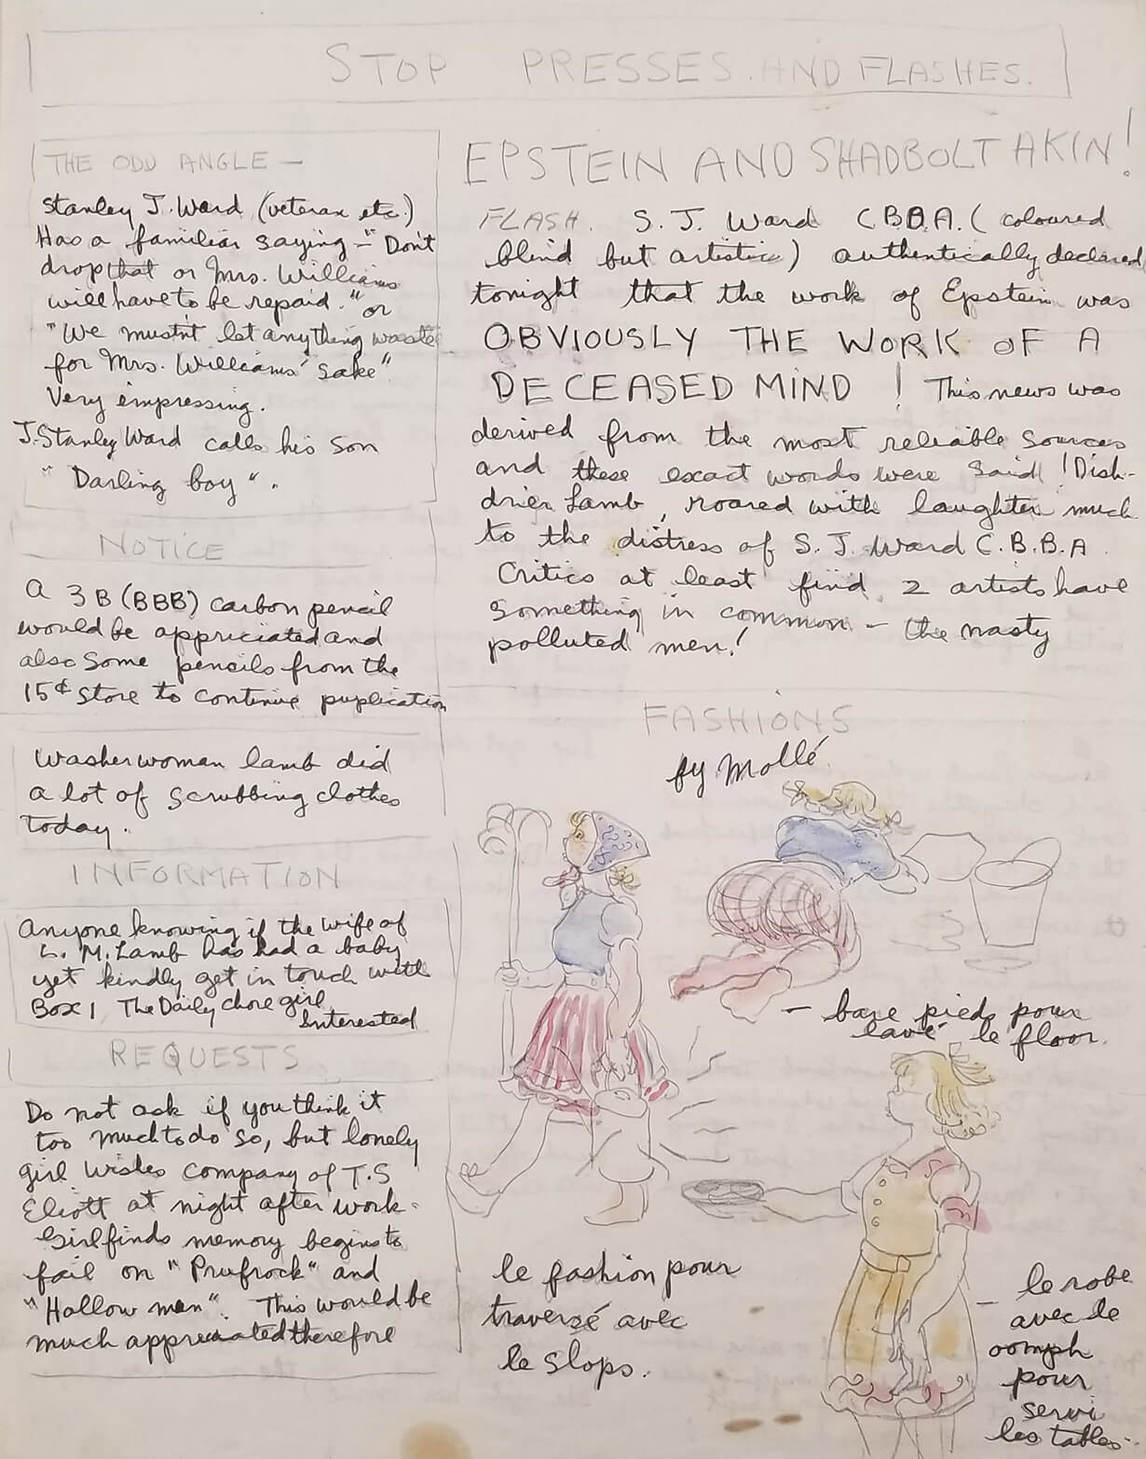 STOP PRESSES. AND FLASHES.
THE ODD ANGLE —
Stanley J. Ward (veteran etc.)
Has a familiar saying — "Don't
drop that or Mrs. Williams
will have to be repaid." or
"We mustn't let anything waste
for Mrs. Williams' sake"
Very impressing.
J. Stanley Ward calls his son
"Darling boy".
NOTICE
A 3B (BBB) carbon pencil
would be appriciated and
also some pencils from the
15¢ store to continue puplication
Washerwoman lamb did
a lot of scrubbing clothes
today.
INFORMATION
Anyone knowing if the wife of
L. M. Lamb has had a baby
yet kindly get in touch with
Box 1, The Daily Chore girl
Interested
REQUESTS
Do not ask if you think it
too much to do so, but lonely
girl wishes company of T.S
Eliott at night after work.
Girl finds memory begins to
fail on "Prufrock" and
"Hollow men". This would be
much appreciated therefore
EPSTEIN AND SHADBOLT AKIN!
FLASH. S. J. Ward C.B.B.A. (coloured
blind but artistic) authentically declared
tonight that the work of Epstein was
OBVIOUSLY THE WORK OF A
DECEASED MIND! This news was
derived from the most reliable sources
and these exact words were said! Dish-
drier Lamb, roared with laughter much
to the distress of S. J. Ward C.B.B.A.
Critics at least find 2 artists have
something in common – the nasty
polluted men!
FASHIONS
by Mollé
— bare pieds pour
lavé le floor.
le fashion pour
traversé avec
le slops.
— le robe
avec de
oomph
pour
servi
les tables.